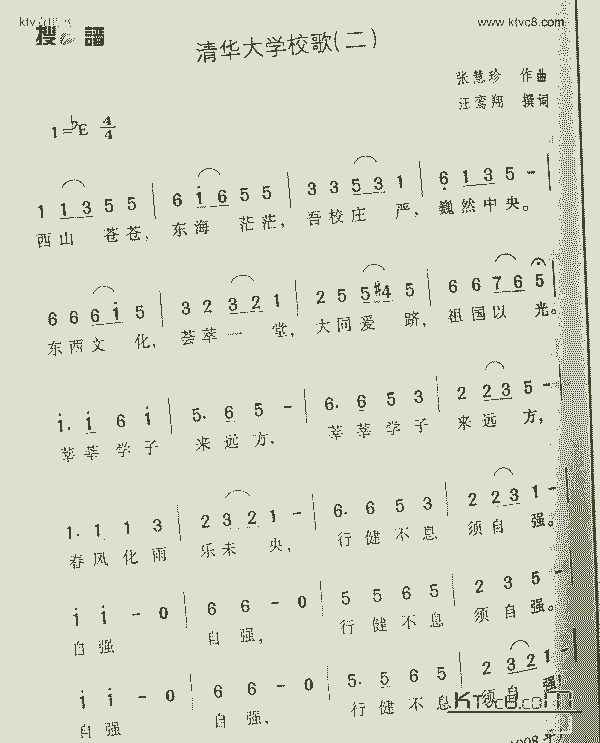 www.ktvc8.com
搜 谱
清华大学校歌(二)
张慧珍 作曲
汪鸾翔 撰词
1=♭E 4/4
1 1 3 5 5 | 6 i 6 5 5 | 3 3 5 3 1 | 6 1 3 5 -
西山 苍苍, 东海 茫茫, 吾校庄 严, 巍然中央。
6 6 6 i 5 | 3 2 3 2 1 | 2 5 5 #4 5 | 6 6 7 6 5
东西文 化, 荟萃一 堂, 大同爱 跻, 祖国以 光。
i. i 6 i | 5. 6 5 - | 6. 6 5 3 | 2 2 3 5 -
莘莘学子 来远方, 莘莘学子 来远方,
1. 1 1 3 | 2 3 2 1 - | 6. 6 5 3 | 2 2 3 1 -
春风化雨 乐未 央, 行健不息 须自 强。
i i - 0 | 6 6 - 0 | 5 5 6 5 | 2 3 5 -
自强 自强, 行健不息 须自强。
i i - 0 | 6 6 - 0 | 5. 5 6 5 | 2 3 2 1 -
自强 自强, 行健不息 须自 强
KTVC8.COM